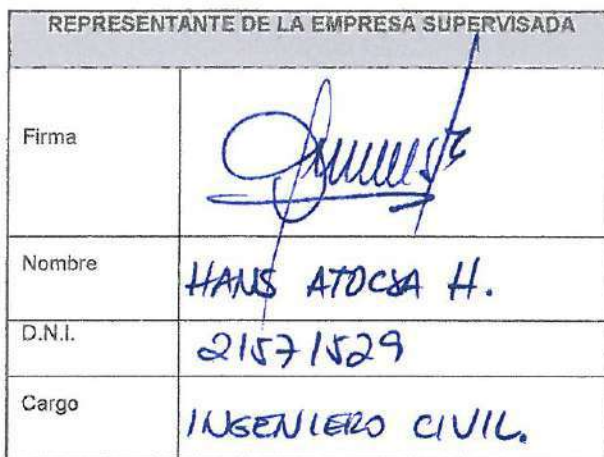 REPRESENTANTE DE LA EMPRESA SUPERVISADA
Firma
Nombre HANS ATOCSA H.
D.N.I. 21571529
Cargo INGENIERO CIVIL.